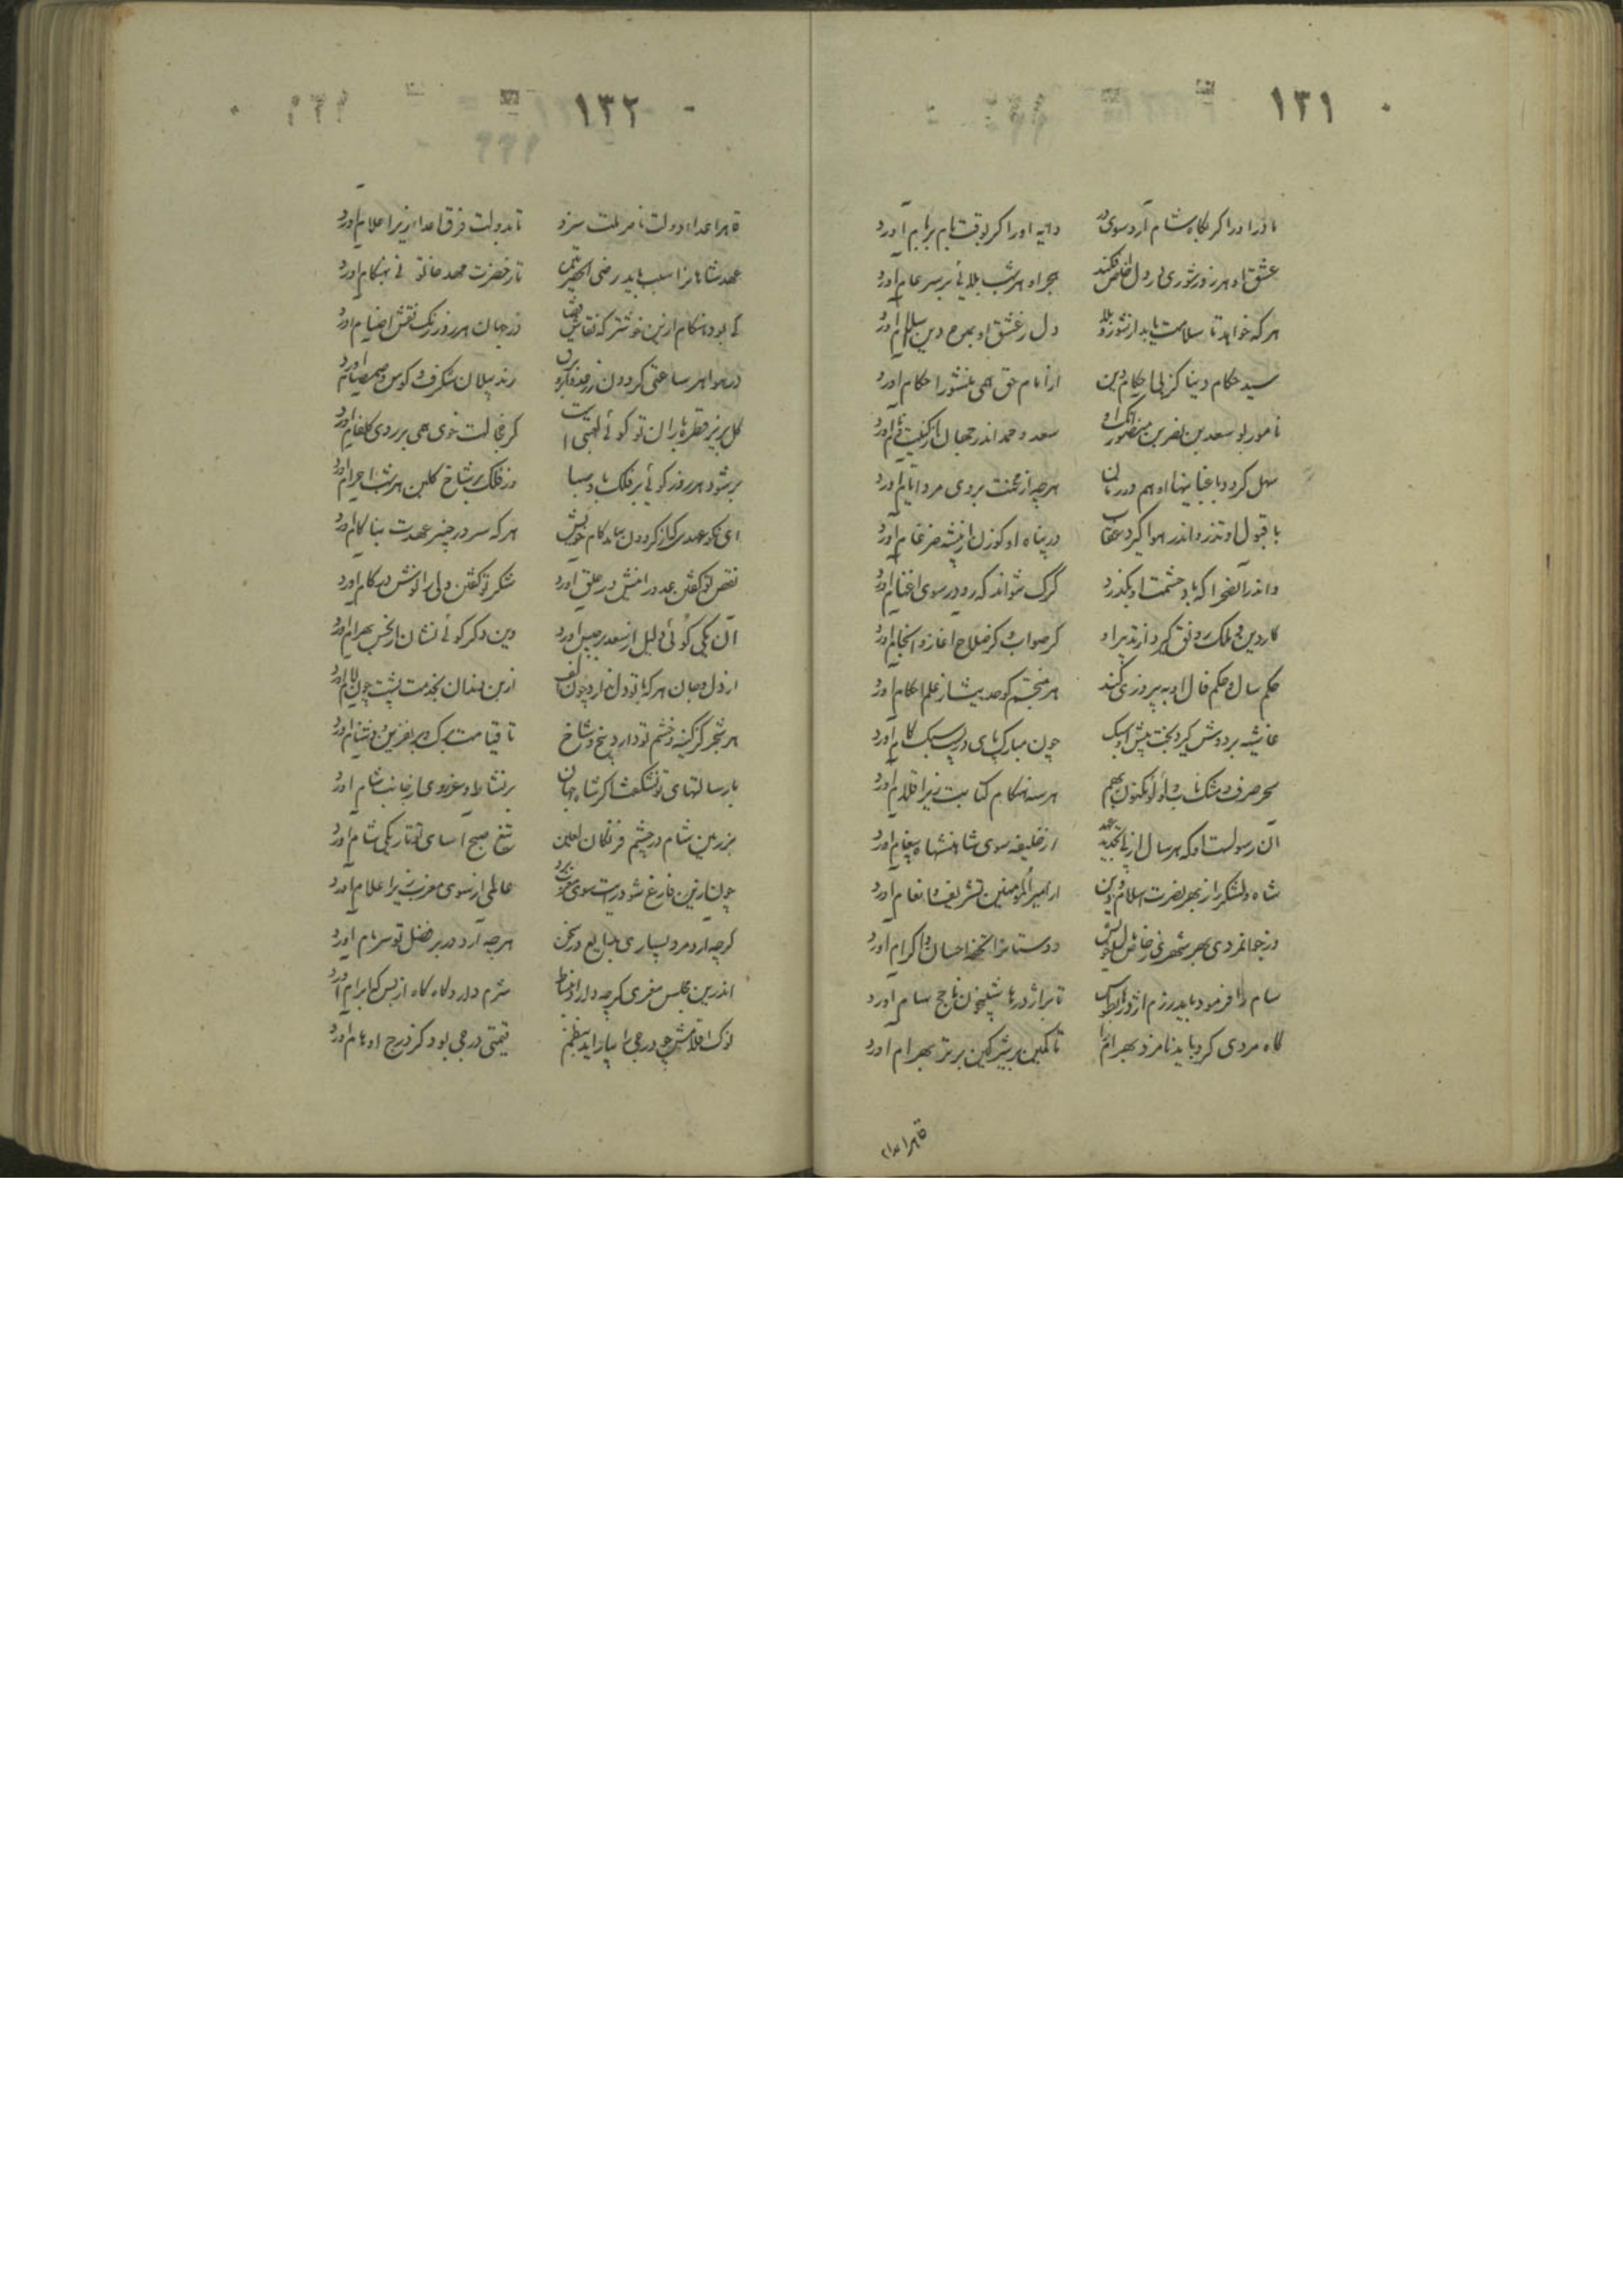 ۱۳۱
مادر او را گر بگاه شام آرد سوی در دایه او را گر بوقت بام بر بام آورد
عشق او هر روز شوری در دل خاص افکند هجر او هر شب بلائی بر سر عام آورد
هر که خواهد تا سلامت یابد از شور و بلا دل ز عشق او بمدح دین اسلام آورد
سید حکام دنیا کز پی احکام دین از امام حق همی منشور احکام آورد
نامور بو سعد بن نصر بن منصور آنکه او سعد و حمد اندر جهان از کنیت و نام آورد
سهل گردد با عنایتهای او هم در زمان هر چه از محنت بروی مرد ایام آورد
با قبول او تذرو اندر هوا گیرد عقاب در پناه او گوزن از بیشه ضرغام آورد
و اندر آن صحرا که باد حشمت او بگذرد گرگ نتواند که رو در سوی اغنام آورد
کار دین و ملک رونق گیرد از تدبیر او کز صواب و کز صلاح آغاز و انجام آورد
حکم سال و حکم فال او به پیروزی کند هر منجم کو حدیثی از علم احکام آورد
غاشیه بر دوش گیرد بخت پیش اسپ او چون مبارک پای در سبک گام آورد
سحر صرف و مشک ناب و لؤلؤ مکنون بهم هر سه هنگام کتابت زیر اقلام آورد
آن رسولست او که هر سال از پی تجدید عهد از خلیفه سوی شاهنشاه پیغام آورد
شاه و لشکر را ز بهر نصرت اسلام و دین از امیر المؤمنین تشریف و انعام آورد
وز جوانمردی بهر شهری ز خاص خویش دوستانرا تحفه احسان و اکرام آورد
سام را فرمود باید رزم اژدرها بطوس تا بر اژدرها شبیخون ناجح سام آورد
گاه مردی کرد باید نامزد بهرام را تا کمین بر شیر کین بر تر بهرام آورد
قاهر اعدا
۱۳۲
قاهر اعدا و دولت ناصر ملت سزد تا بدولت فرق اعدا زیر اعلام آورد
عهد شاهانرا سبب باید رضی الحضرتین تا ز حضرت مهد خاتونی بهنگام آورد
کی بود هنگام ازین خوشتر که نقاش قضا در جهان هر روز رنگ نقش اصنام آورد
در هوا هر ساعتی گردون ز رعد و ابر و برق زنده پیلان شگرف و کوس و صمصام آورد
گل بریزد قطره باران تو گوئی لعبتی است کز خجالت خوی همی بر روی گلفام آورد
بر شود هر روز گوئی بر فلک باد صبا وز فلک بر شاخ گلبن هر شب اجرام آورد
ای نکو عهدی که از گردون بیابد کام خویش هر که سر در چنبر عهدت بناکام آورد
نقص تو گفتن عدو را نیش در حلق آورد شکر تو گفتن ولی را نوش در کام آورد
آن یکی گوئی دلیل از سعد برجیس آورد وین دگر گوئی نشان از نحس بهرام آورد
از دل و جان هر که با تو دل ندارد چون الف ازین دندان بخدمت پشت چون لام آورد
هر شجر کز کینه و خشم تو دارد بیخ و شاخ تا قیامت برگ و بر نفرین و دشنام آورد
با رسالتهای تو نشگفت اگر شاه جهان بر نشاط و عزم روی از جانب شام آورد
بر زمین شام در چشم فرنگان لعین تیغ صبح آسای تو تاریکی شام آورد
چون ازین فارغ شود رایت سوی مغرب برد عالمی از سوی مغرب زیر اعلام آورد
گر چه آرد مرد بسیاری بدایع در سخن هر چه آرد در بر فضل تو سرسام آورد
اندرین مجلس معزی گر چه دارد انبساط شرم دارد گاه گاه از بس که ابرام آورد
نوک اقلامش چو درجی را بیاراید بنظم قیمتی درجی بود کز درج اوهام آورد